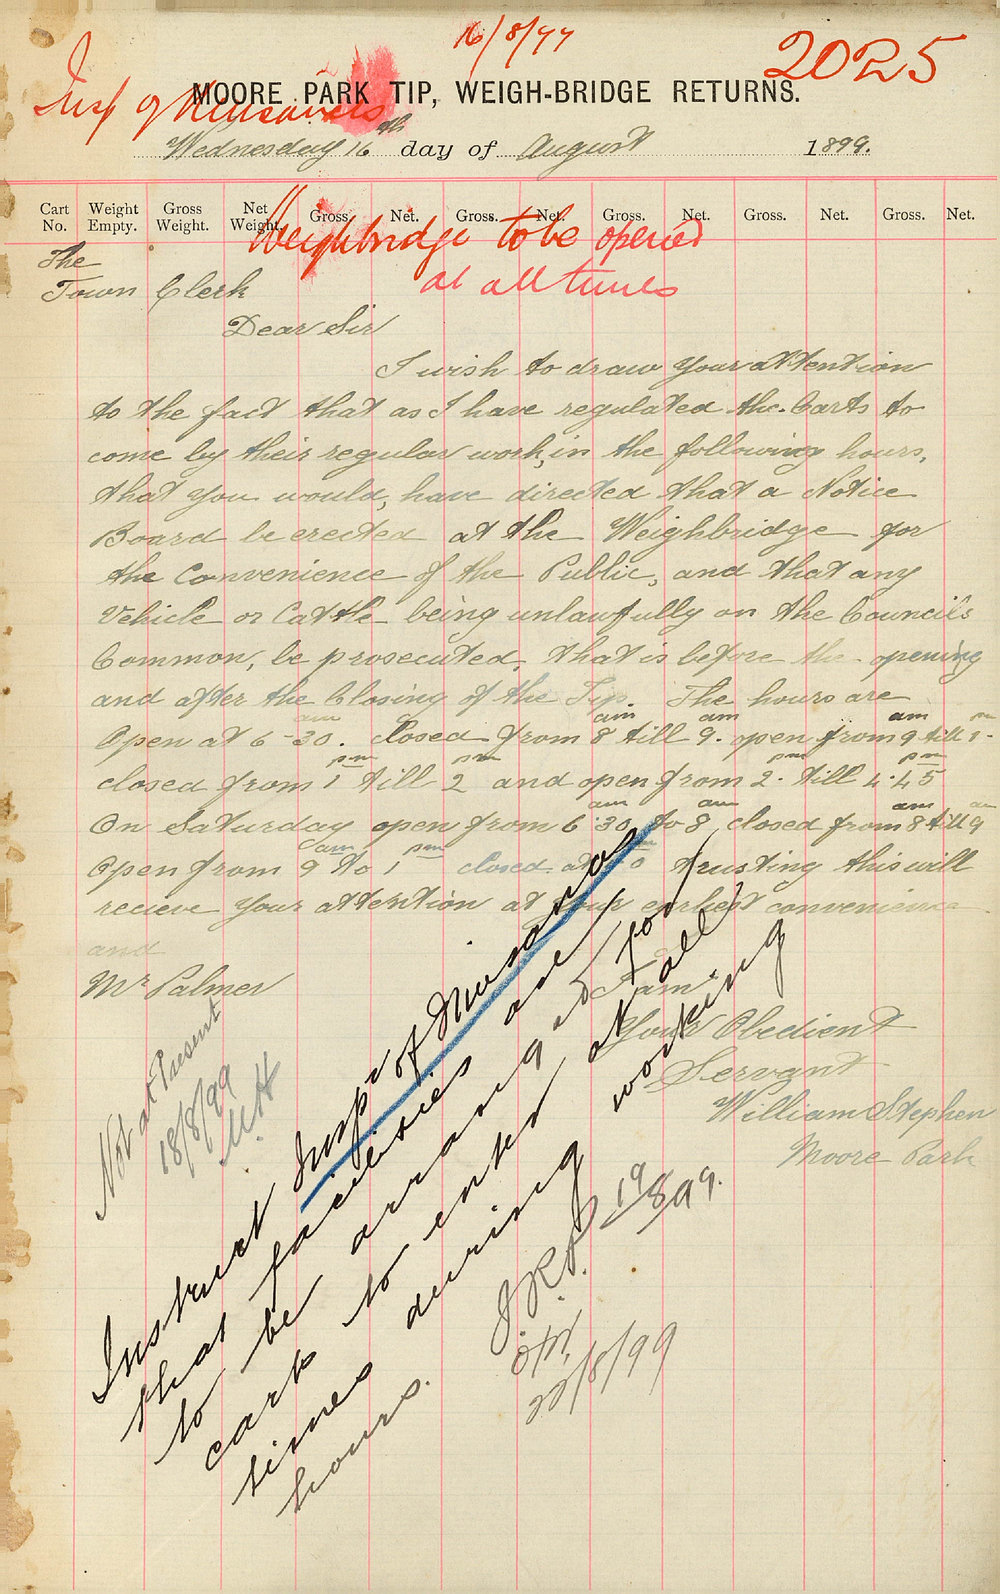 16/8/99
2025
Insp of Nuisances
MOORE PARK TIP, WEIGH-BRIDGE RETURNS.
Wednesday 16th day of August 1899.
Cart No. Weight Empty. Gross Weight. Net Weight. Gross. Net. Gross. Net. Gross. Net. Gross. Net. Gross. Net.
Weighbridge to be opened
at all times
The
Town Clerk
Dear Sir
I wish to draw your attention
to the fact that as I have regulated the Carts to
come by their regular work, in the following hours,
that you would, have directed that a Notice
Board be erected at the Weighbridge for
the Convenience of the Public, and that any
Vehicle or Cattle being unlawfully on the Councils
Common, be prosecuted, that is before the opening
and after the Closing of the Tip. The hours are
Open at 6-30 am. Closed from 8 am till 9 am. open from 9 am till 1 pm.
closed from 1 pm till 2 pm and open from 2 pm till 4.45 pm
On Saturday open from 6.30 am to 8 am closed from 8 am till 9 am
Open from 9 am to 1 pm closed at trusting this will
recieve your attention at your earliest convenience
and
Mr Palmer
I am
Your Obedient
Servant
William Stephen
Moore Park
Not at Present
18/8/99
Instruct Insp of Nuisances
that facilities are
to be arranged for
carts to enter at all
times during working
hours.
J.R.P.
19/8/99.
22/8/99